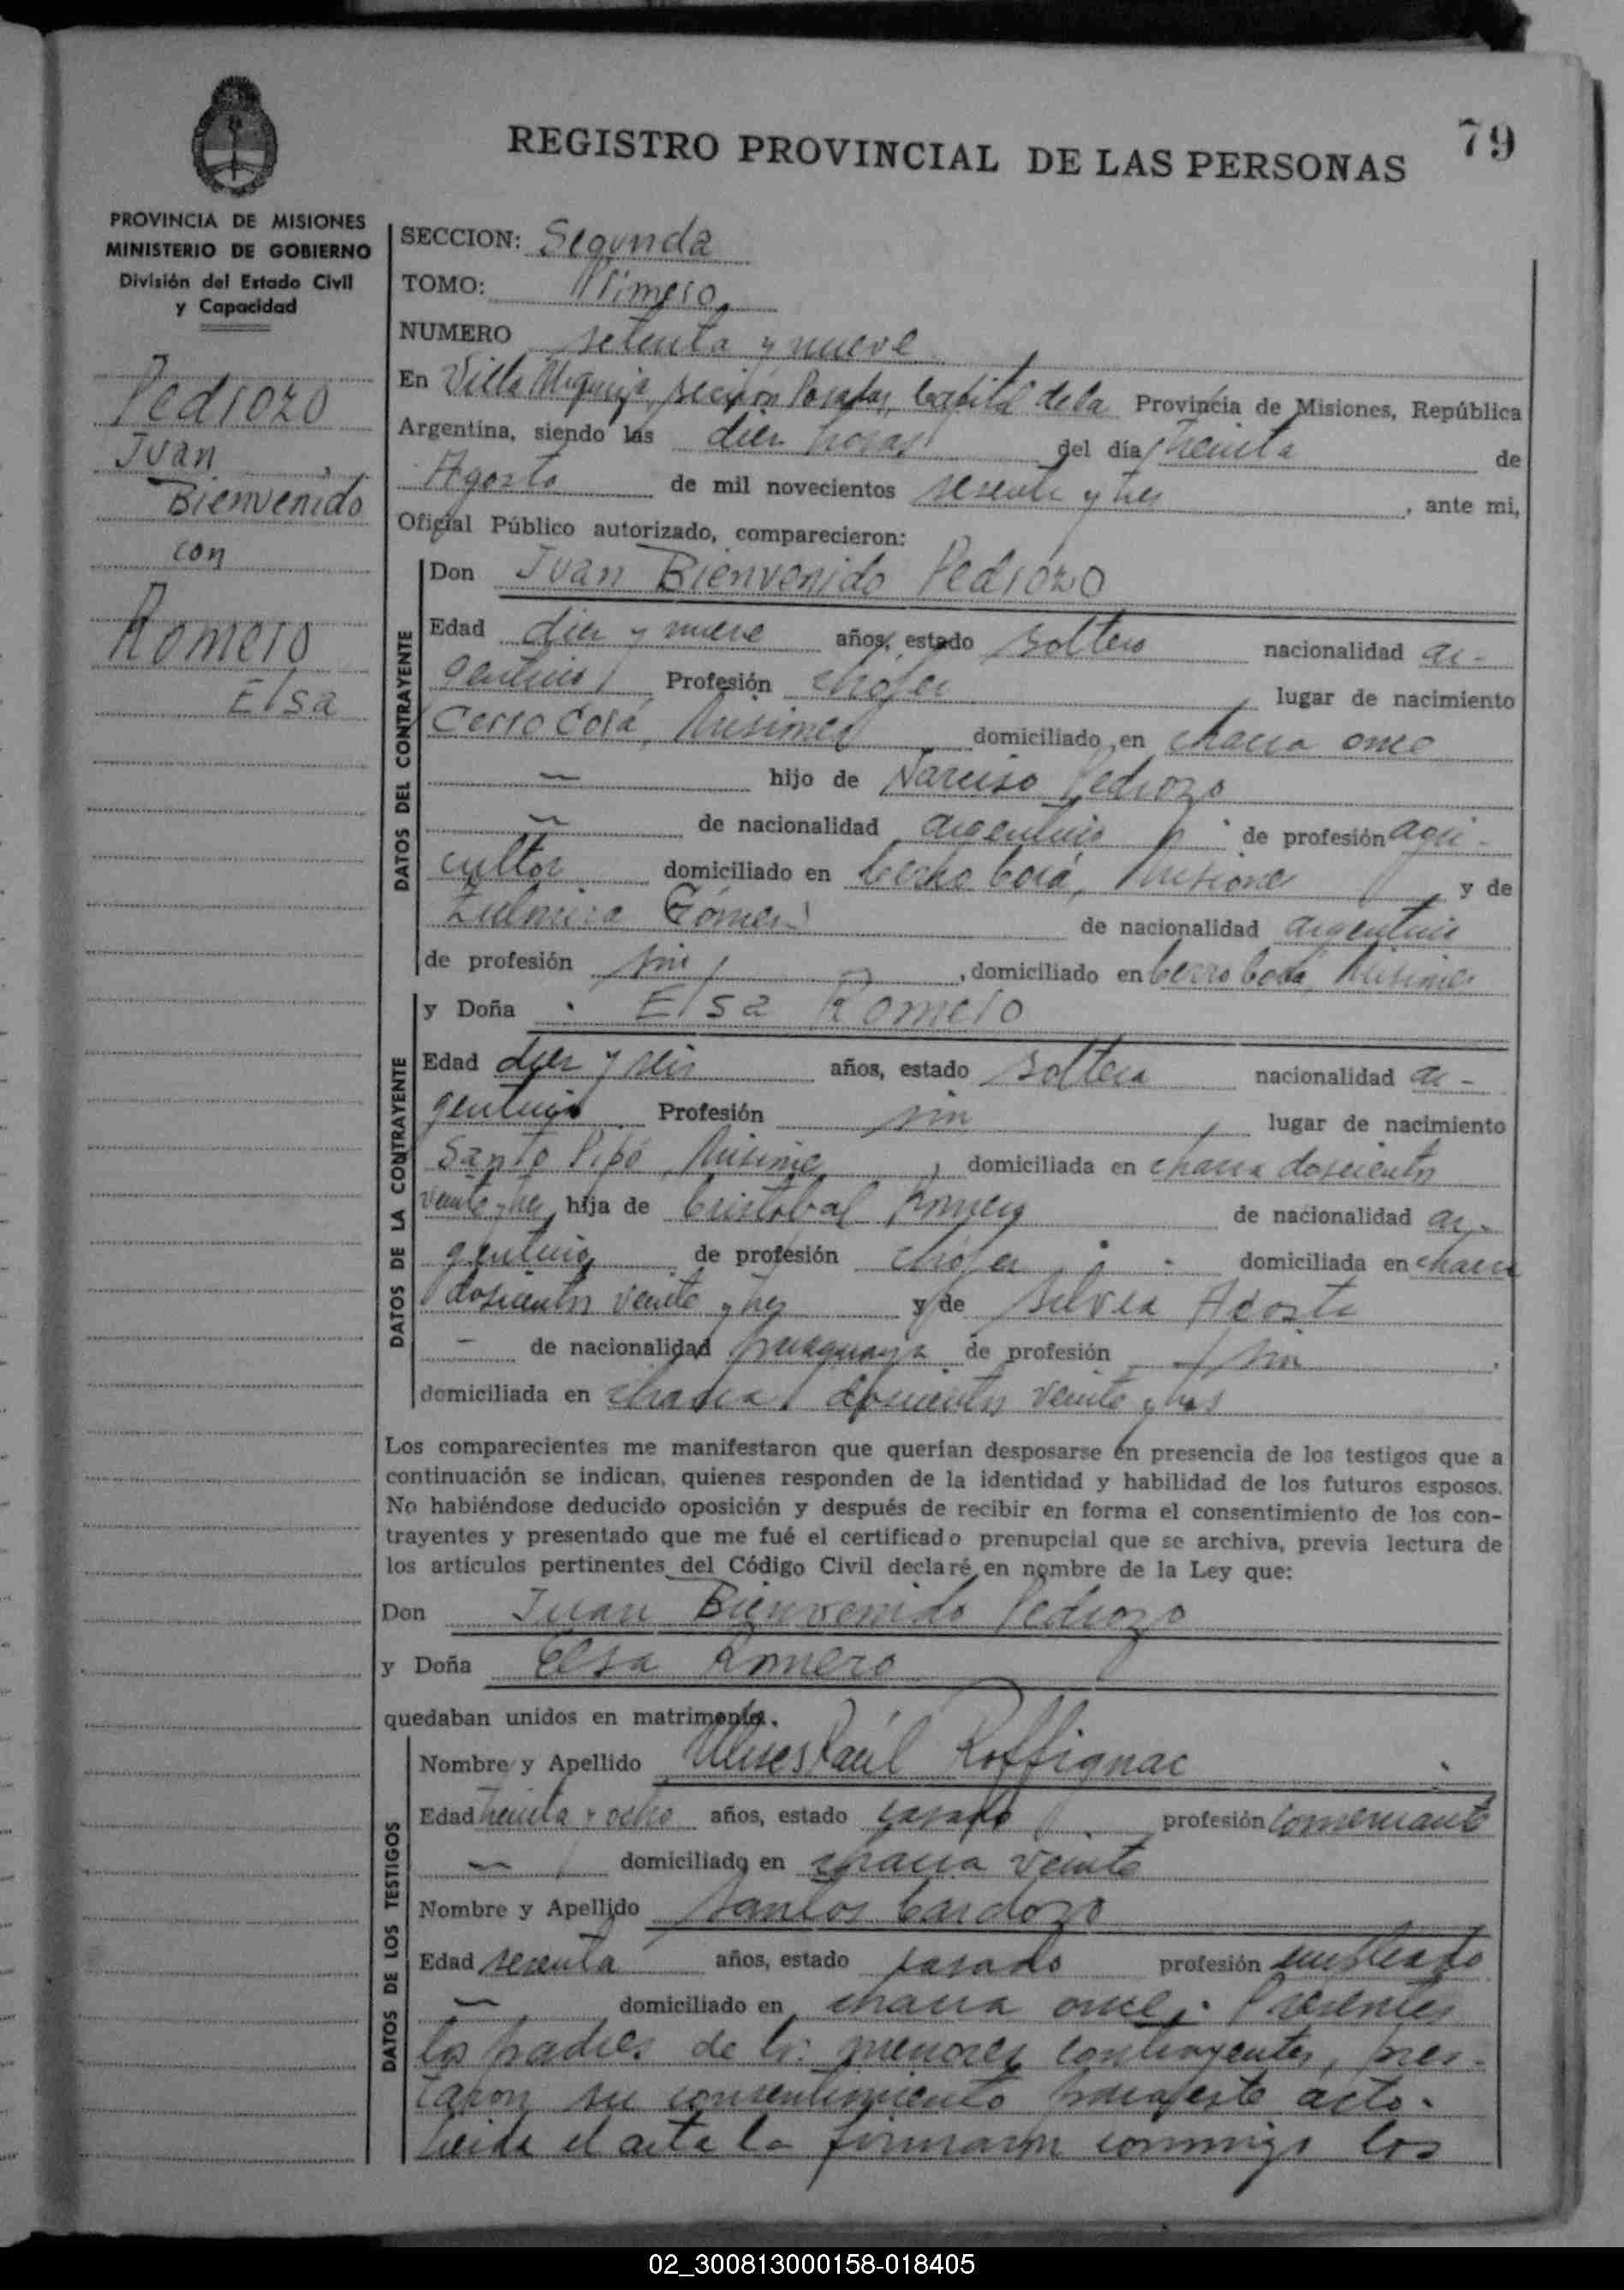 79
REGISTRO PROVINCIAL DE LAS PERSONAS
PROVINCIA DE MISIONES
MINISTERIO DE GOBIERNO
División del Estado Civil
y Capacidad
Pedrozo
Juan
Bienvenido
con
Romero
Elsa
SECCION: Segunda
TOMO: Primero
NUMERO setenta y nueve
En Villa Urquiza, sección Posadas, Capital de la Provincia de Misiones, República
Argentina, siendo las diez horas del día treinta de
Agosto de mil novecientos sesenta y tres, ante mi,
Oficial Público autorizado, comparecieron:
DATOS DEL CONTRAYENTE
Don Juan Bienvenido Pedrozo
Edad diez y nueve años, estado soltero nacionalidad ar-
gentino, Profesión chófer, lugar de nacimiento
Cerro Corá, Misiones domiciliado en chacra once
— hijo de Narciso Pedrozo
— de nacionalidad argentino de profesión agri-
cultor domiciliado en Cerro Corá, Misiones y de
Zulmira Gómez de nacionalidad argentina
de profesión sin, domiciliado en Cerro Corá, Misiones
DATOS DE LA CONTRAYENTE
y Doña Elsa Romero
Edad diez y seis años, estado soltera nacionalidad ar-
gentina Profesión sin, lugar de nacimiento
Santo Pipó, Misiones, domiciliada en chacra doscientos
veinte y tres, hija de Cristobal Romero de nacionalidad ar-
gentino, de profesión chófer domiciliada en chacra
doscientos veinte y tres y de Silvia Acosta
— de nacionalidad paraguaya de profesión sin
domiciliada en chacra doscientos veinte y tres
Los comparecientes me manifestaron que querían desposarse en presencia de los testigos que a
continuación se indican, quienes responden de la identidad y habilidad de los futuros esposos.
No habiéndose deducido oposición y después de recibir en forma el consentimiento de los con-
trayentes y presentado que me fué el certificado prenupcial que se archiva, previa lectura de
los artículos pertinentes del Código Civil declaré en nombre de la Ley que:
Don Juan Bienvenido Pedrozo
y Doña Elsa Romero
quedaban unidos en matrimonio.
DATOS DE LOS TESTIGOS
Nombre y Apellido Ulises Raúl Roffignac
Edad treinta y ocho años, estado casado profesión comerciante
— domiciliado en chacra veinte
Nombre y Apellido Santos Cardozo
Edad sesenta años, estado casado profesión empleado
— domiciliado en chacra once. Presentes
los padres de los menores contrayentes, pres-
taron su consentimiento para este acto.
Leida el acta la firmaron conmigo los
02_300813000158-018405